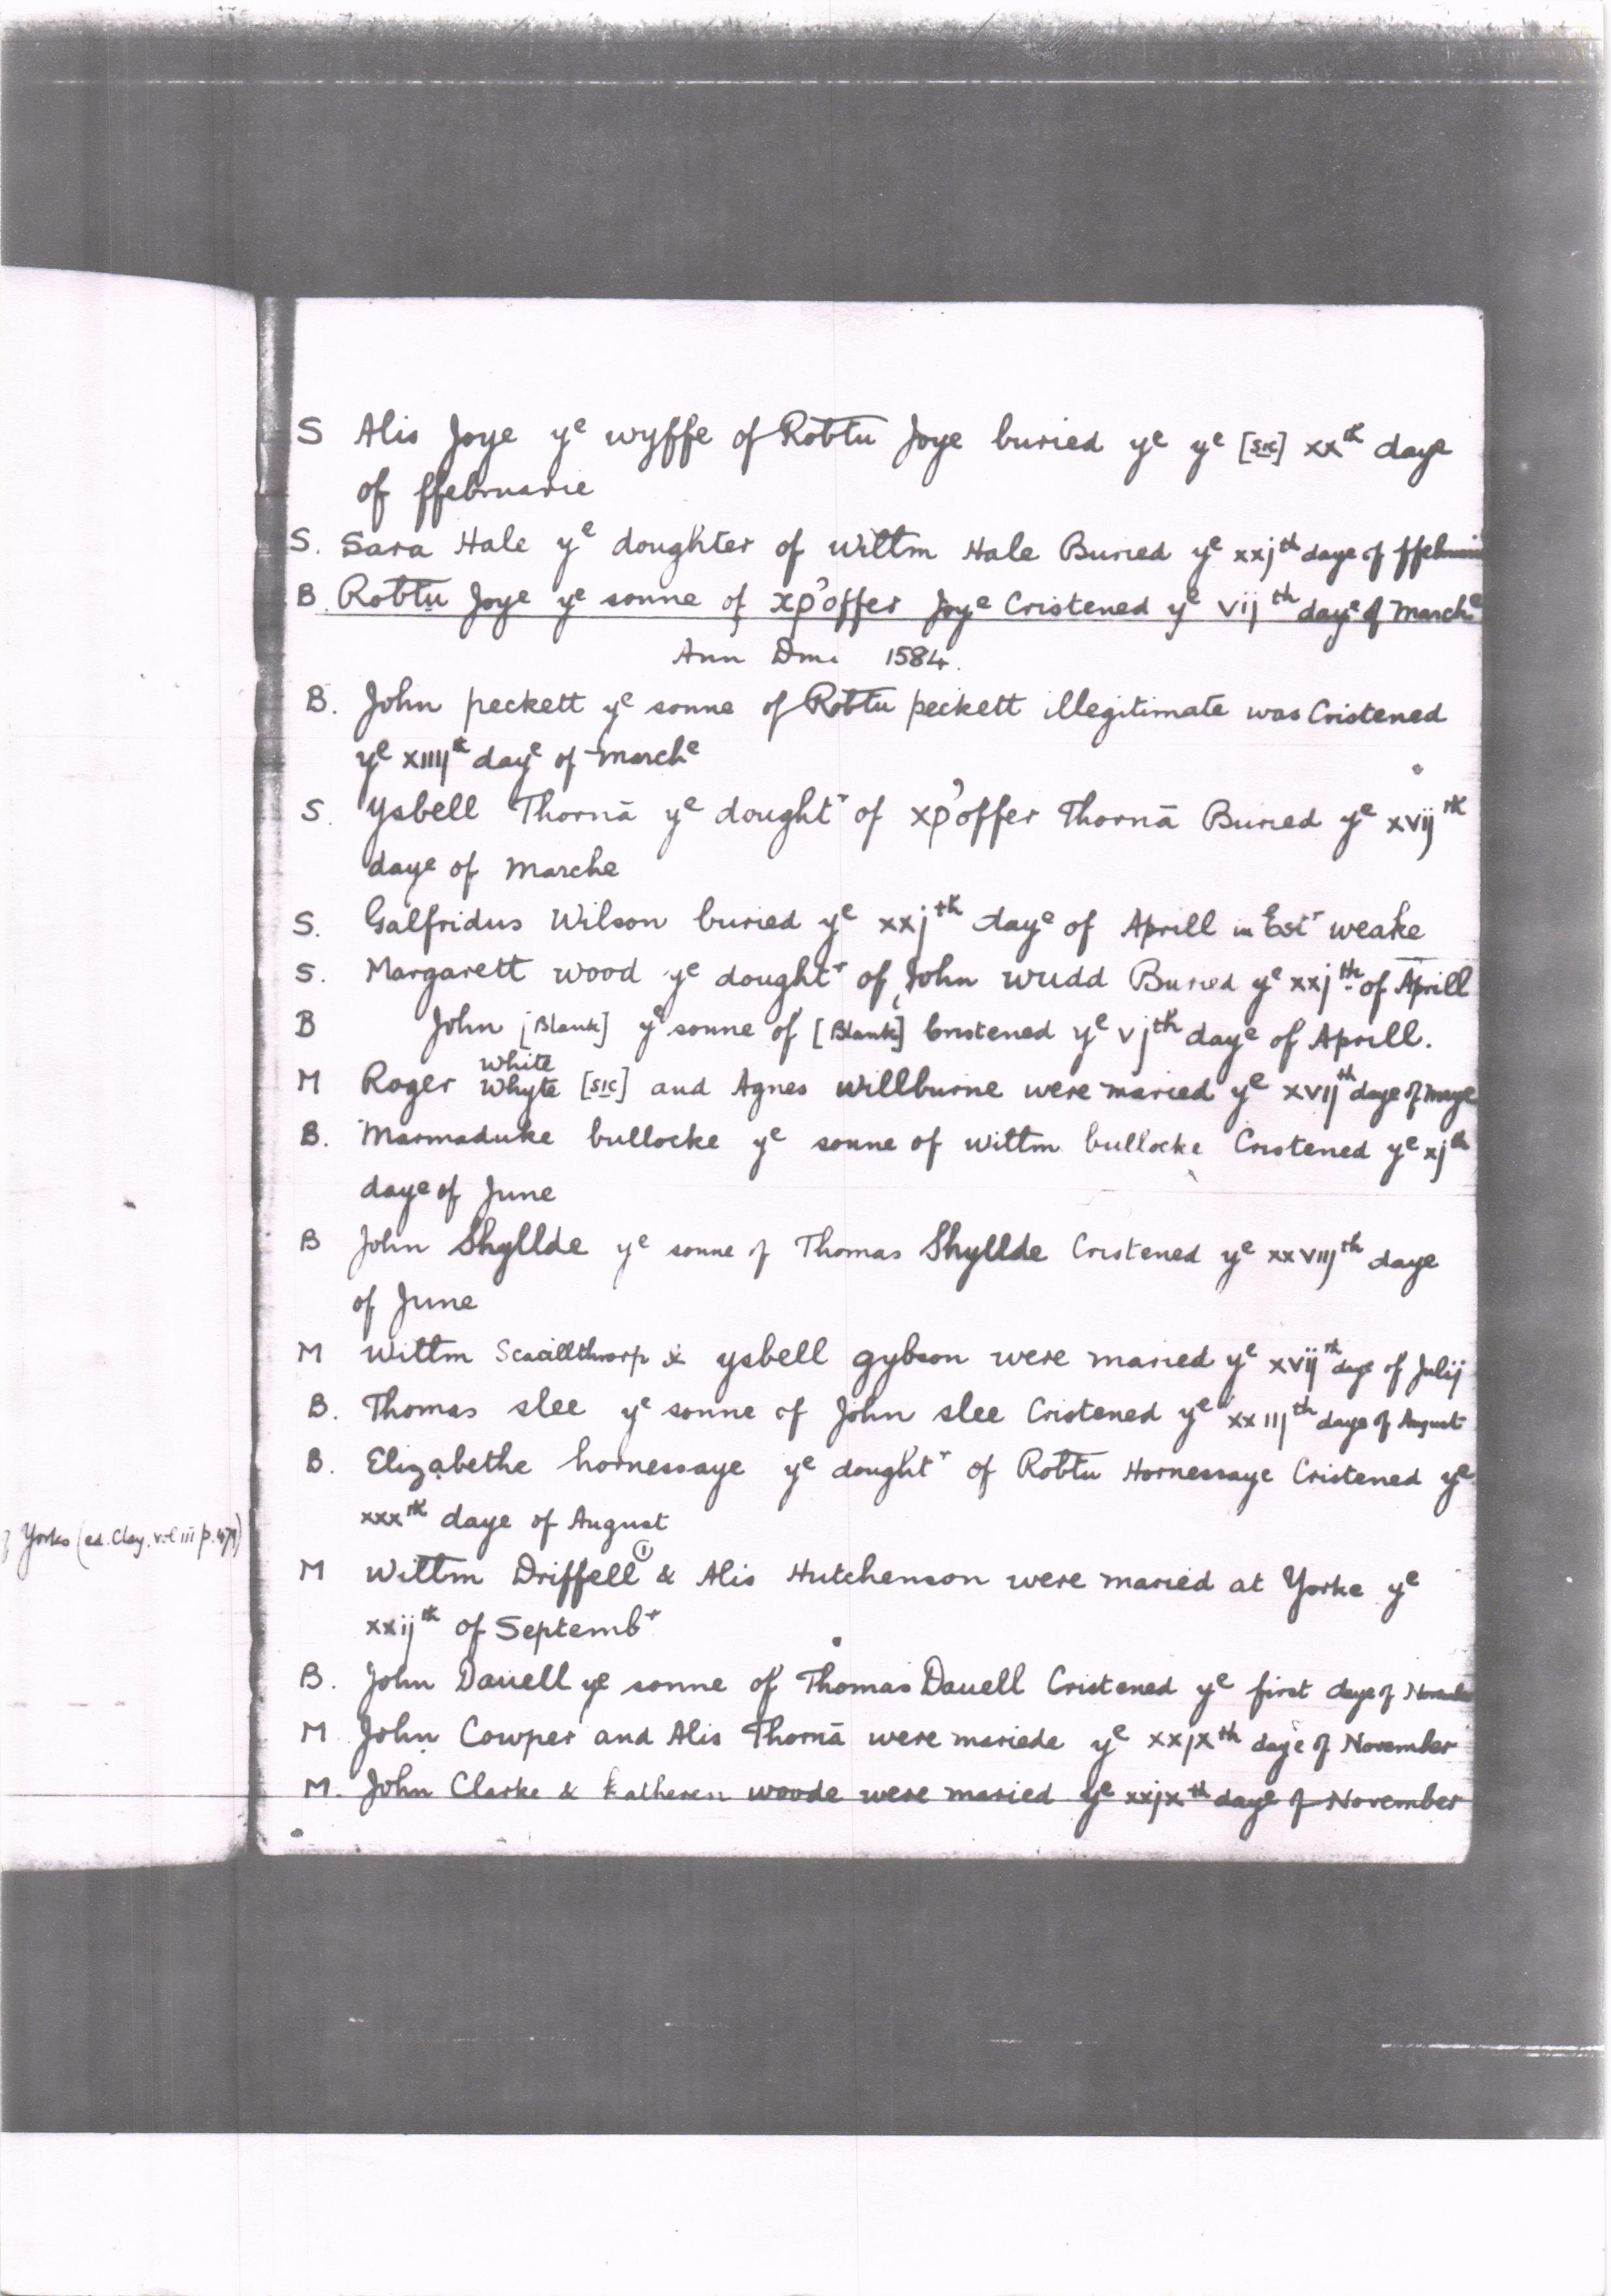 S Alis Joye yᵉ wyffe of Robtu Joye buried yᵉ yᵉ [sic] xxᵗʰ daye
of ffebruarie
S. Sara Hale yᵉ doughter of Willm Hale Buried yᵉ xxjᵗʰ daye of ffebruarie
B. Robtu Joye yᵉ sonne of xp'offer Joye Cristened yᵉ vijᵗʰ dayᵉ of marchᵉ
Ann Dm. 1584.
B. John peckett yᵉ sonne of Robtu peckett illegitimate was Cristened
yᵉ xiiijᵗʰ dayᵉ of marchᵉ
S. Ysbell Thornā yᵉ doughtʳ of xp'offer Thornā Buried yᵉ xvijᵗʰ
daye of marche
S. Galfridus Wilson buried yᵉ xxjᵗʰ dayᵉ of Aprill in Estʳ weake
S. Margarett wood yᵉ doughtʳ of John wudd Buried yᵉ xxjᵗʰ of Aprill
B John [Blank] yᵉ sonne of [Blank] Cristened yᵉ vjᵗʰ dayᵉ of Aprill.
white
M Roger Whyte [sic] and Agnes willburne were maried yᵉ xvijᵗʰ daye of maye
B. Marmaduke bullocke yᵉ sonne of willm bullocke Cristened yᵉ xjᵗʰ
daye of June
B John Shyllde yᵉ sonne of Thomas Shyllde Cristened yᵉ xxviijᵗʰ daye
of June
M Willm Scaillthorp & ysbell gybson were maried yᵉ xvijᵗʰ daye of Julij
B. Thomas slee yᵉ sonne of John slee Cristened yᵉ xxiijᵗʰ daye of August
B. Elizabethe hornessaye yᵉ doughtʳ of Robtu Hornessaye Cristened yᵉ
xxxᵗʰ daye of August
Yorks (ed. Clay, vol iii p. 479)
M Willm Driffell ① & Alis Hutchenson were maried at Yorke yᵉ
xxijᵗʰ of Septembʳ
B. John Dauell yᵉ sonne of Thomas Dauell Cristened yᵉ first daye of November
M. John Cowper and Alis Thornā were mariede yᵉ xxjxᵗʰ daye of November
M. John Clarke & katheren woode were maried yᵉ xxjxᵗʰ daye of November